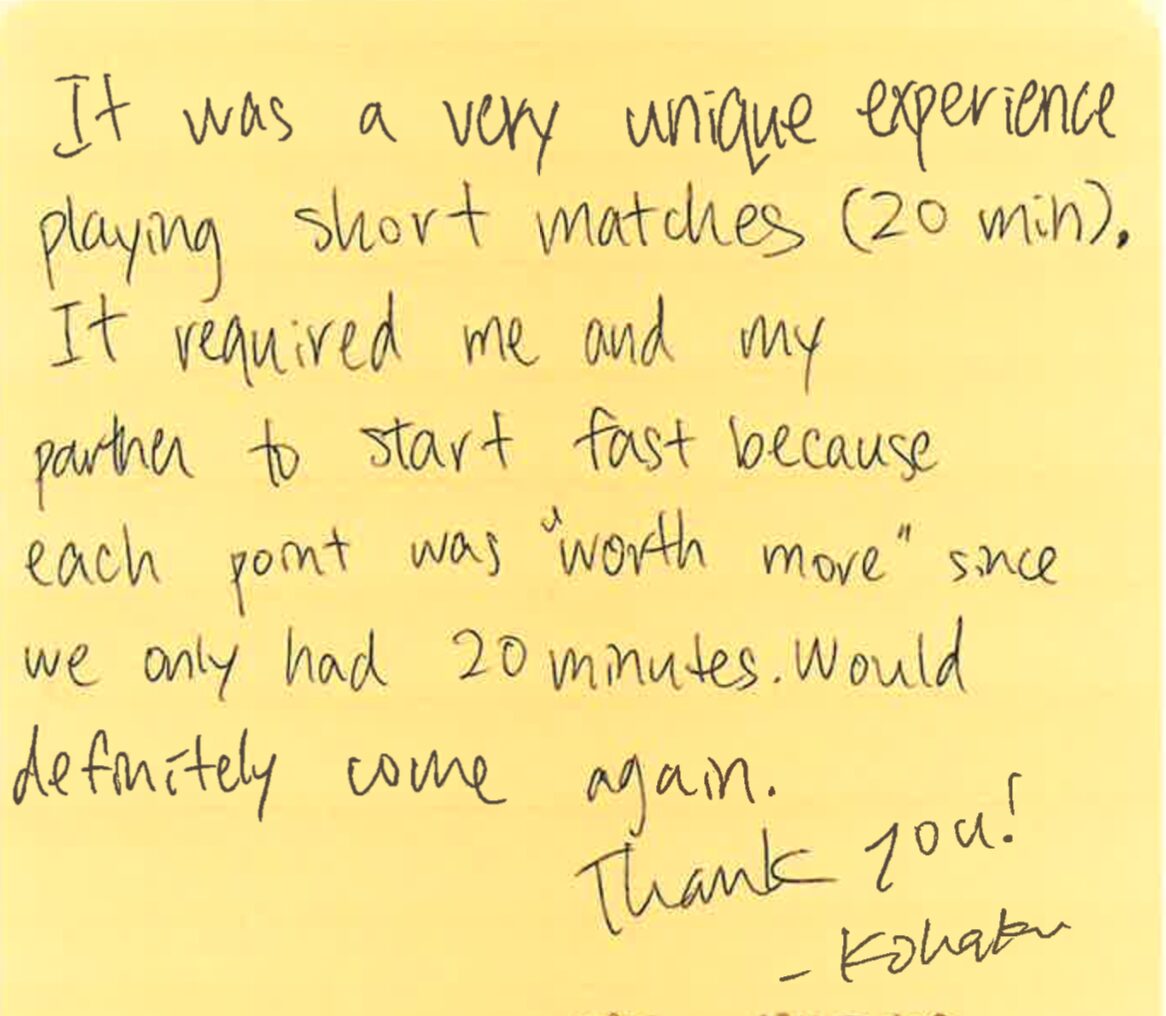 It was a very unique experience
playing short matches (20 min).
It required me and my
partner to start fast because
each point was "worth more" since
we only had 20 minutes. Would
definitely come again.
Thank you!
- Kohaku